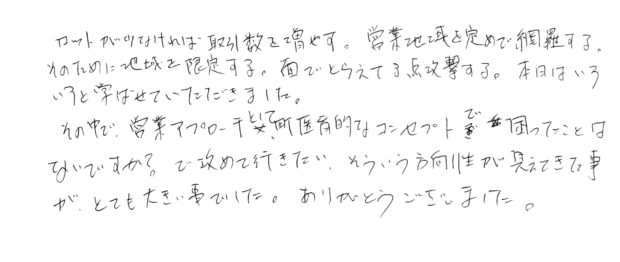 ロットが少なければ取引数を増やす。営業地域を定めて網羅する。
そのために地域を限定する。面でとらえてる点攻撃する。本日はいろ
いろと学ばせていただきました。
その中で、営業アプローチとして、町医者的なコンセプトで困ったことは
ないですか？で攻めて行きたい、そういう方向性が見えてきた事
が、とても大きい事でした。ありがとうございました。